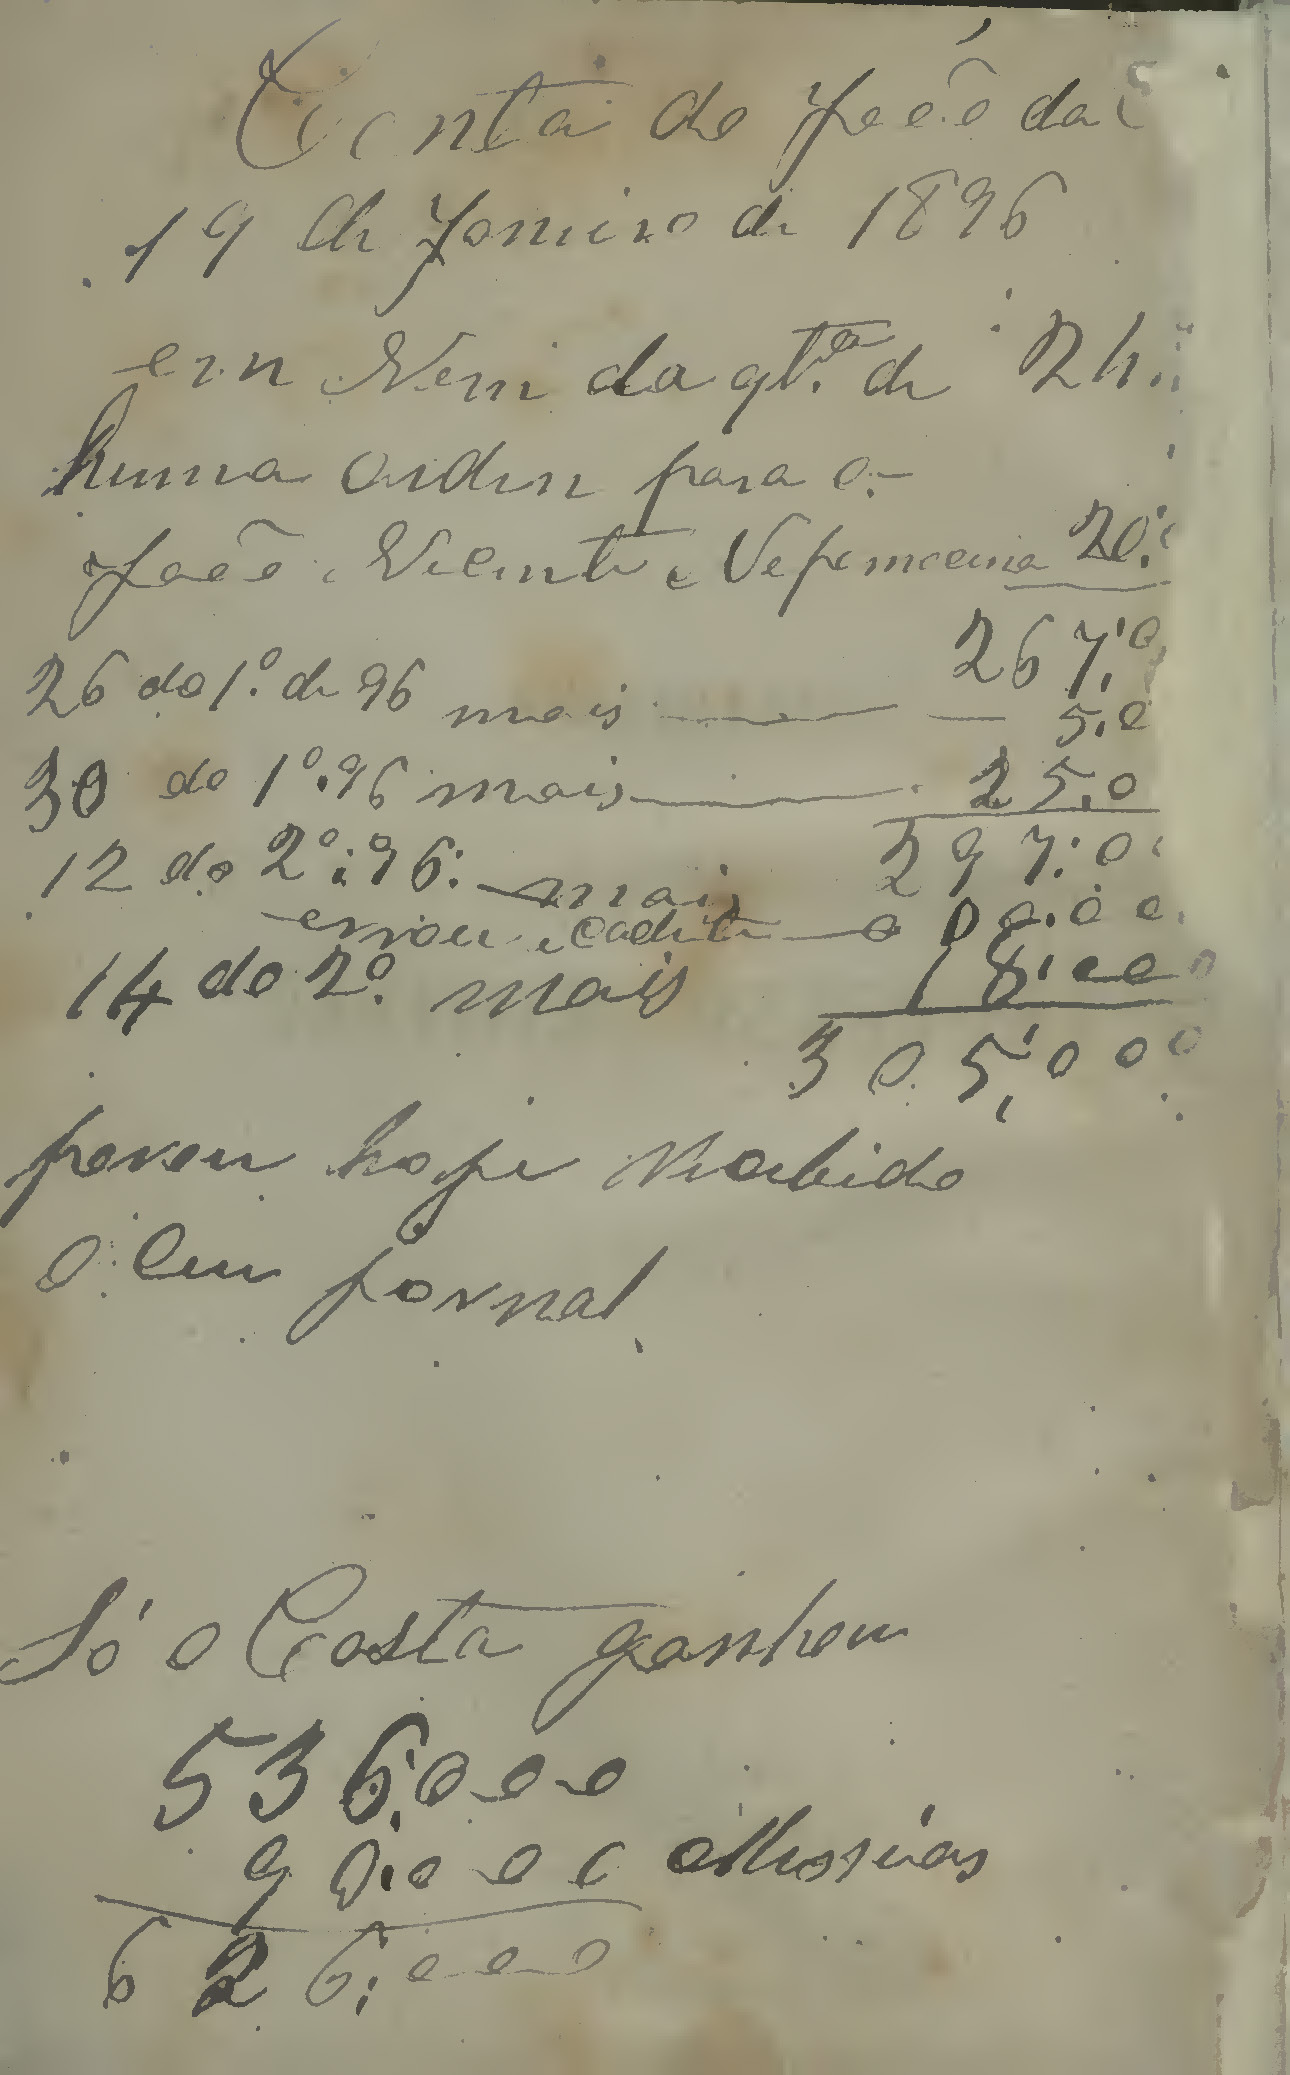 Conta de João da C
19 de Janeiro de 1896
em da qt.ª de 2
huma ordem para o
João, Vicente, e Nepomocena 20:
267:0
26 do 1.º de 96 mais 5:0
30 do 1º.96 mais 25:0
297:0
12 do 2º:96: mais
errou 00:00
14 do 2º. mais 18:000
305:000
porem hoje recebido
o seu jornal
Só o Costa ganhou
536:000
90:000 Messias
626:000